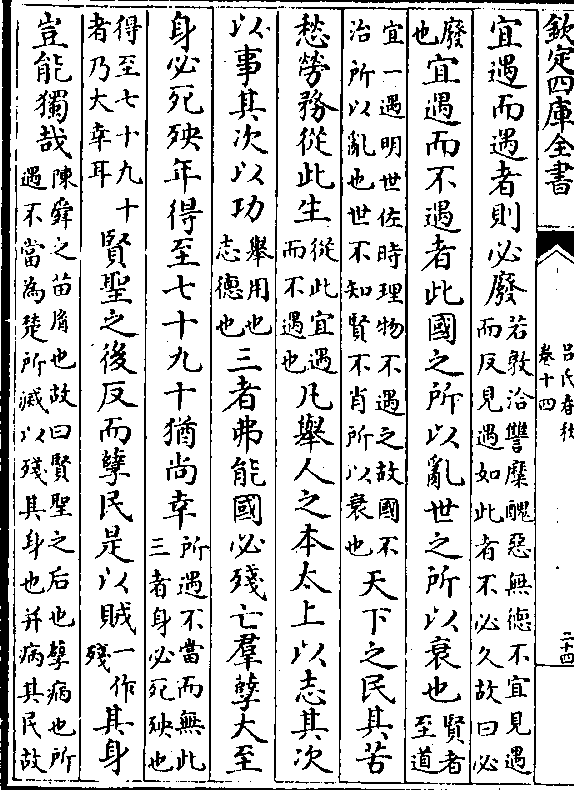 欽定四庫全書
呂氏春秋
卷十四
二十四
宜遇而遇者則必廢若敦洽讐麋醜惡無德不宜見遇而反見遇如此者不必久故曰必
廢也宜遇而不遇者此國之所以亂世之所以衰也賢者至道
宜一遇明世佐時理物不遇之故國不治所以亂也世不知賢不肖所以衰也天下之民其苦
愁勞務從此生從此宜遇而不遇也凡舉人之本太上以志其次
以事其次以功舉用也志德也三者弗能國必殘亡羣孽大至
身必死殃年得至七十九十猶尚幸所遇不當而無此三者身必死殃也
得至七十九十者乃大幸耳賢聖之後反而孽民是以賊一作殘其身
豈能獨哉陳舜之苗胄也故曰賢聖之后也孽病也所遇不當為楚所滅以殘其身也并病其民故